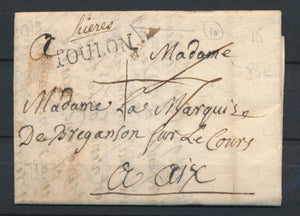 hieres
A TOULON
Madame
Madame La Marquise
De Breganson sur Le Cours
a aix
15